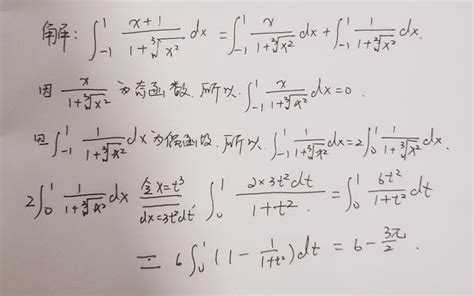 解: ∫_{-1}^{1} \frac{x+1}{1+\sqrt[3]{x^2}} dx = ∫_{-1}^{1} \frac{x}{1+\sqrt[3]{x^2}} dx + ∫_{-1}^{1} \frac{1}{1+\sqrt[3]{x^2}} dx.
因 \frac{x}{1+\sqrt[3]{x^2}} 为奇函数, 所以, ∫_{-1}^{1} \frac{x}{1+\sqrt[3]{x^2}} dx = 0.
因 ∫_{-1}^{1} \frac{1}{1+\sqrt[3]{x^2}} dx 为偶函数, 所以, ∫_{-1}^{1} \frac{1}{1+\sqrt[3]{x^2}} dx = 2∫_{0}^{1} \frac{1}{1+\sqrt[3]{x^2}} dx.
2∫_{0}^{1} \frac{1}{1+\sqrt[3]{x^2}} dx \frac{令 x=t^3}{dx=3t^2dt} ∫_{0}^{1} \frac{2×3t^2dt}{1+t^2} = ∫_{0}^{1} \frac{6t^2}{1+t^2} dt
= 6∫_{0}^{1} (1 - \frac{1}{1+t^2}) dt = 6 - \frac{3π}{2}.